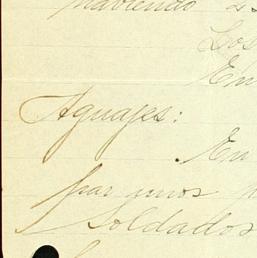 habiendo
Los
En
Aguajes:
En
par unos p
Soldados